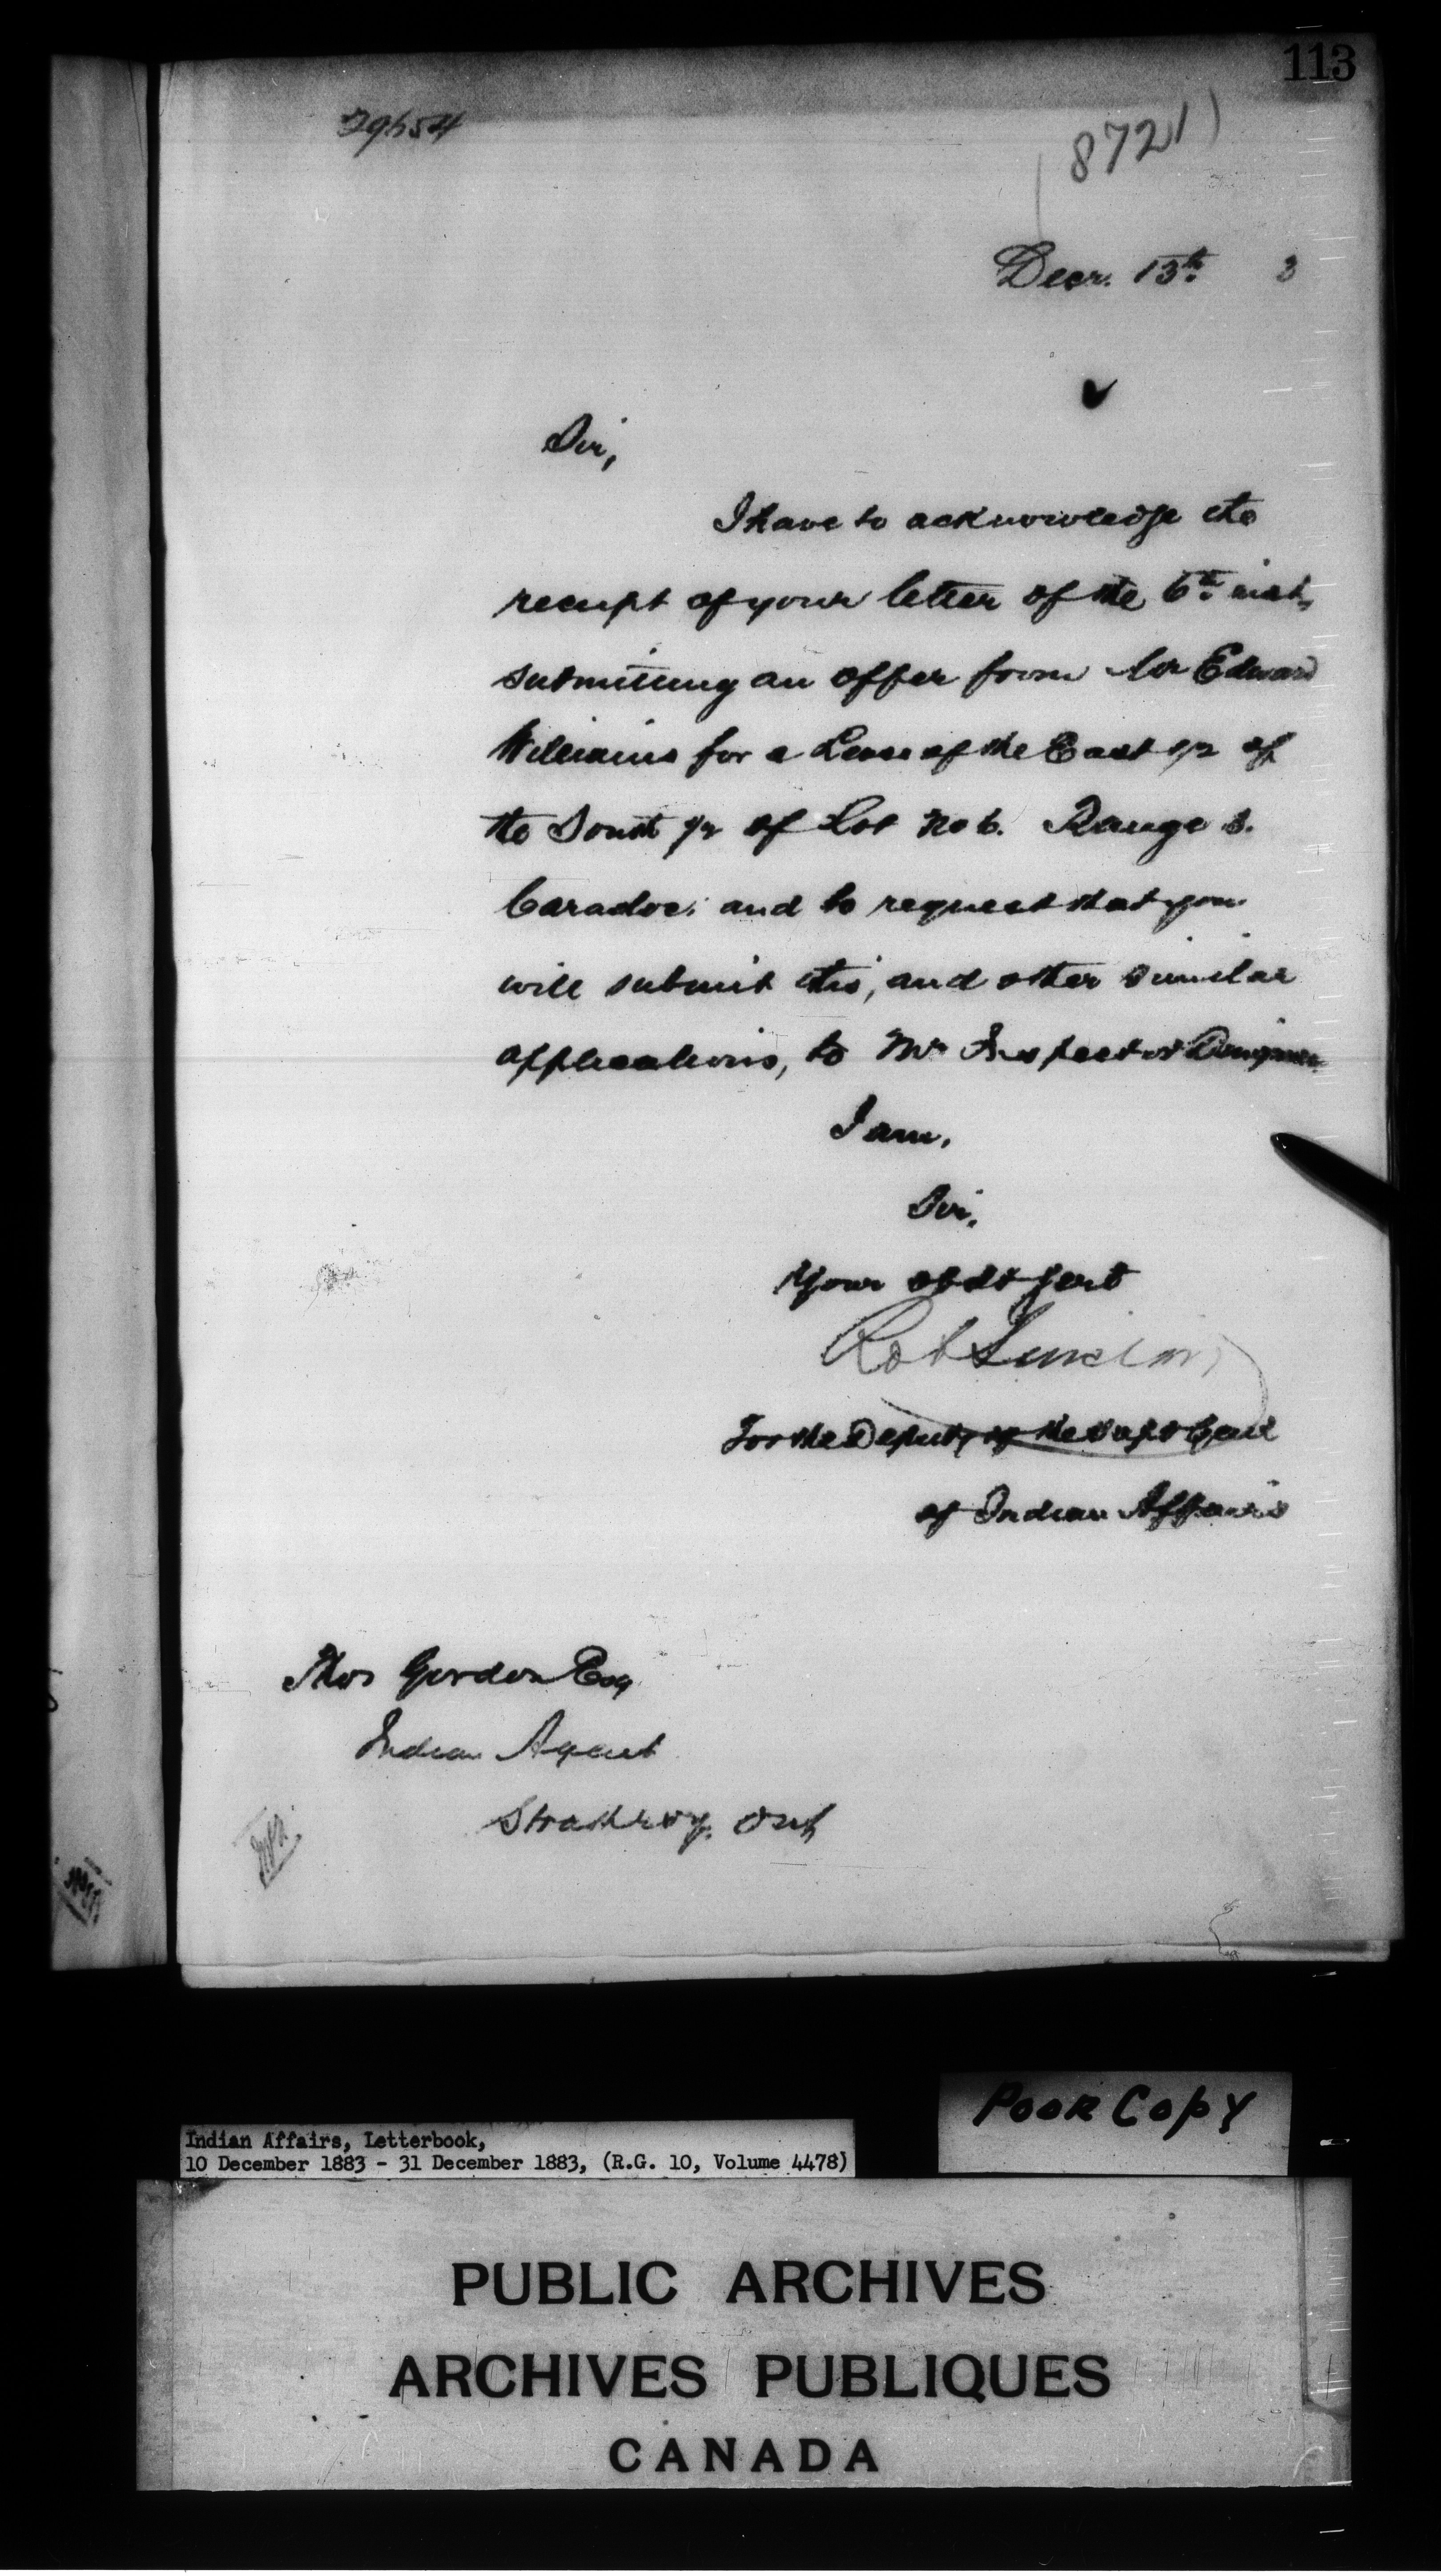 113
29654
(8721)
Decr. 13th. 3
Sir,
I have to acknowledge the
receipt of your letter of the 6th. inst.,
submitting an offer from Mr Edward
Williams for a Lease of the East 1/2 of
the South 1/2 of Lot No 6. Range 3.
Caradoc; and to request that you
will submit this, and other similar
applications, to Mr Inspector Dingman.
I am,
Sir,
Your obdt Servt
Rob Sinclair
For the Deputy of the Supt Genl
of Indian Affairs
Thos Gordon Esq
Indian Agent
Strathroy, Ont
Poor Copy
Indian Affairs, Letterbook,
10 December 1883 - 31 December 1883, (R.G. 10, Volume 4478)
PUBLIC ARCHIVES
ARCHIVES PUBLIQUES
CANADA